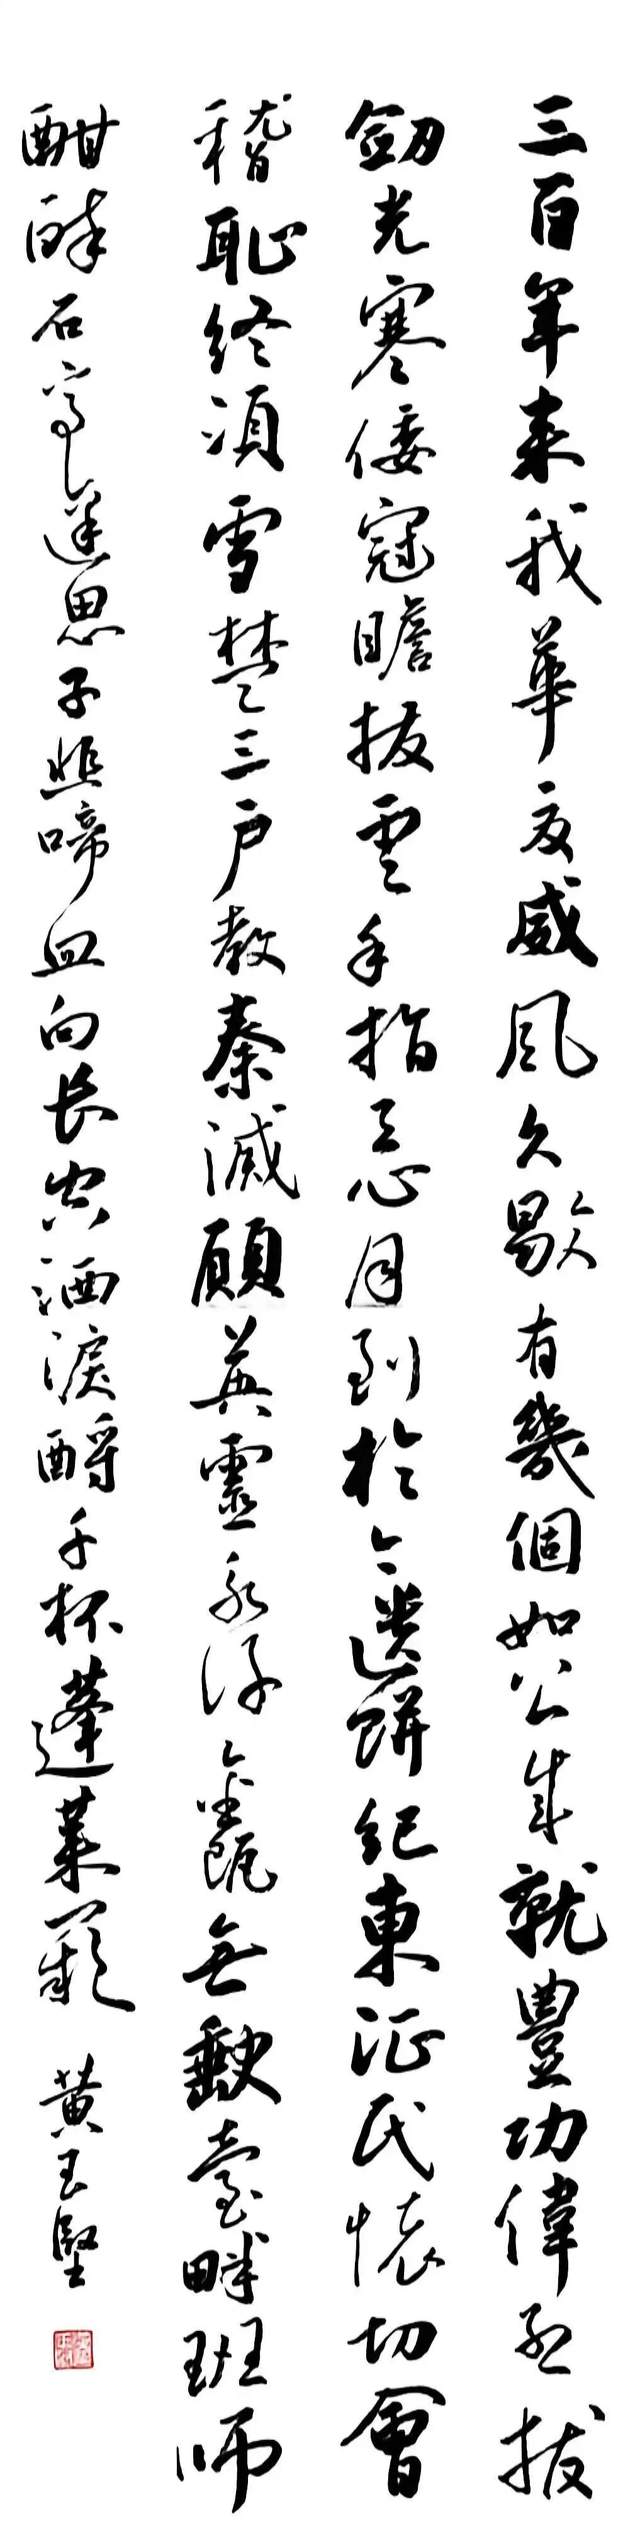 三百年来我華夏威風久歇有幾個如公成就豐功偉烈拔
劒光寒倭寇瞻拔雲手指天心月到於今遺餅紀東征民懷切會
稽恥終須雪楚三户教秦滅願英靈永保金甌無缺臺畔班師
酣醉石亭邊思子悲啼血向長空洒淚酹千杯蓬萊闕 黄玉堅